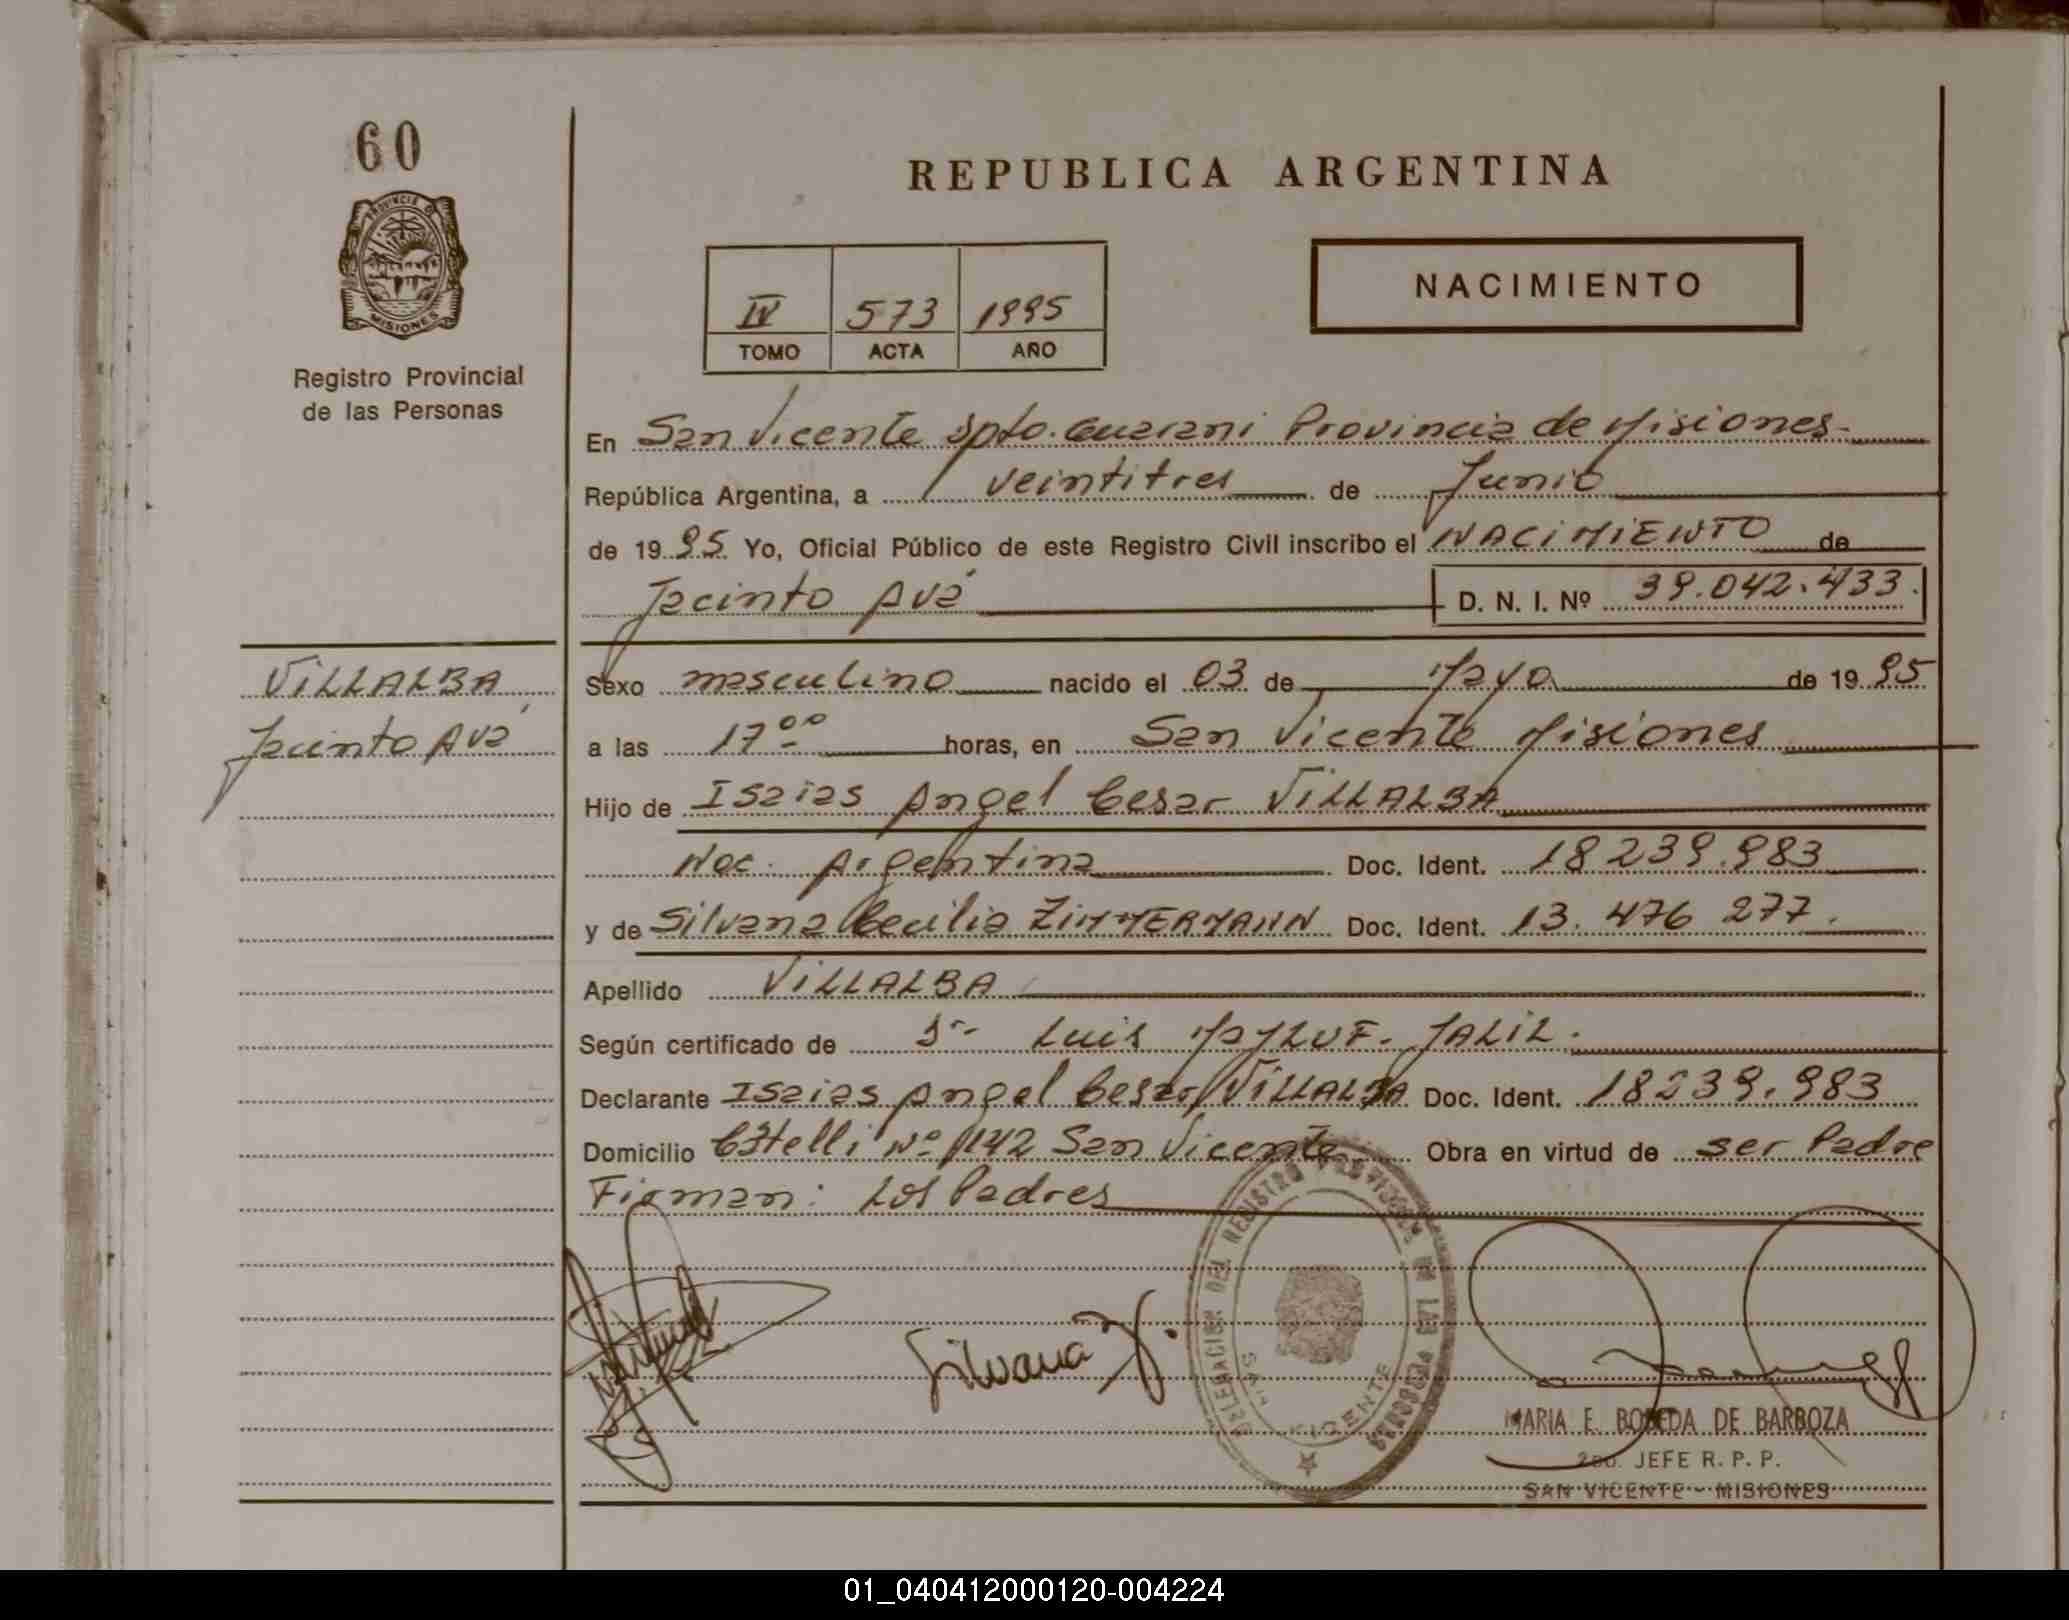 60
PROVINCIA D
MISIONES
Registro Provincial
de las Personas
REPUBLICA ARGENTINA
IV 573 1995
TOMO ACTA AÑO
NACIMIENTO
En San Vicente Dpto. Guarani Provincia de Misiones
República Argentina, a veintitres de Junio
de 1995 Yo, Oficial Público de este Registro Civil inscribo el NACIMIENTO de
Jacinto Avá D. N. I. Nº 39.042.433.
VILLALBA
Jacinto Avá
Sexo masculino nacido el 03 de Mayo de 1995
a las 17°° horas, en San Vicente Misiones
Hijo de Isaias Angel Cesar VILLALBA
Nac. Argentina Doc. Ident. 18239.983
y de Silvana Cecilia ZIMMERMANN Doc. Ident. 13.476 277.
Apellido VILLALBA
Según certificado de Dr Luis JALIL.
Declarante Isaias Angel Cesar VILLALBA Doc. Ident. 18239.983
Domicilio Nº 1142 San Vicente Obra en virtud de ser Padre
Firman: Los Padres
Silvana Z.
DELEGACION DEL REGISTRO PROVINCIAL DE LAS PERSONAS
SAN VICENTE
MARIA E. BOVEDA DE BARBOZA
2do. JEFE R. P. P.
SAN VICENTE - MISIONES
01_040412000120-004224